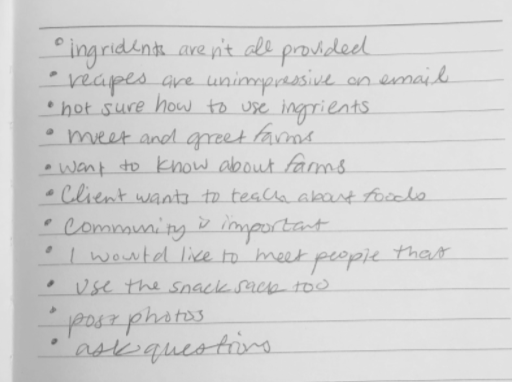 • ingridents aren't all provided
• recipes are unimpressive on email
• not sure how to use ingrients
• meet and greet farms
• want to know about farms
• Client wants to teach about foods
• Community is important
• I would like to meet people that
• use the snack sack too
• post photos
• ask questions